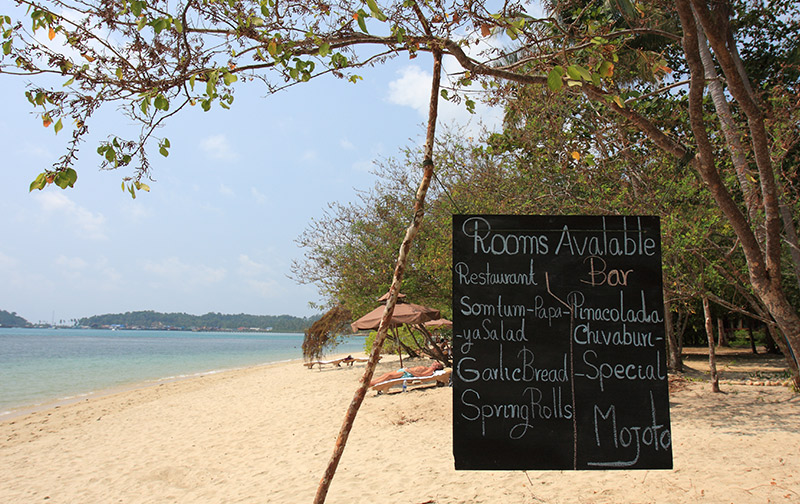 Rooms Avalable
Restaurant
Somtum-Papa-
-ya Salad
Garlic Bread
Spring Rolls
Bar
Pinacolada
Chivaburi-
-Special
Mojoto